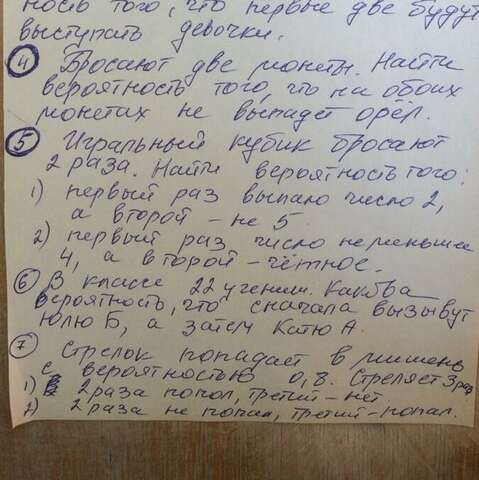 ность того, что первые две будут
выступать девочки.
4 Бросают две монеты. Найти
вероятность того, что на обоих
монетах не выпадет орёл.
5 Игральный кубик бросают
2 раза. Найти вероятность того:
1) первый раз выпало число 2,
а второй - не 5
2) первый раз число не меньше
4, а второй - чётное.
6 В классе 22 ученик. Какова
вероятность, что сначала вызывут
Юлю Б, а затем Катю А.
7 Стрелок попадает в мишень
с вероятностью 0,8. Стреляет 3 раз
1) 2 раза попал, третий - нет
2) 2 раза не попал, третий - попал.